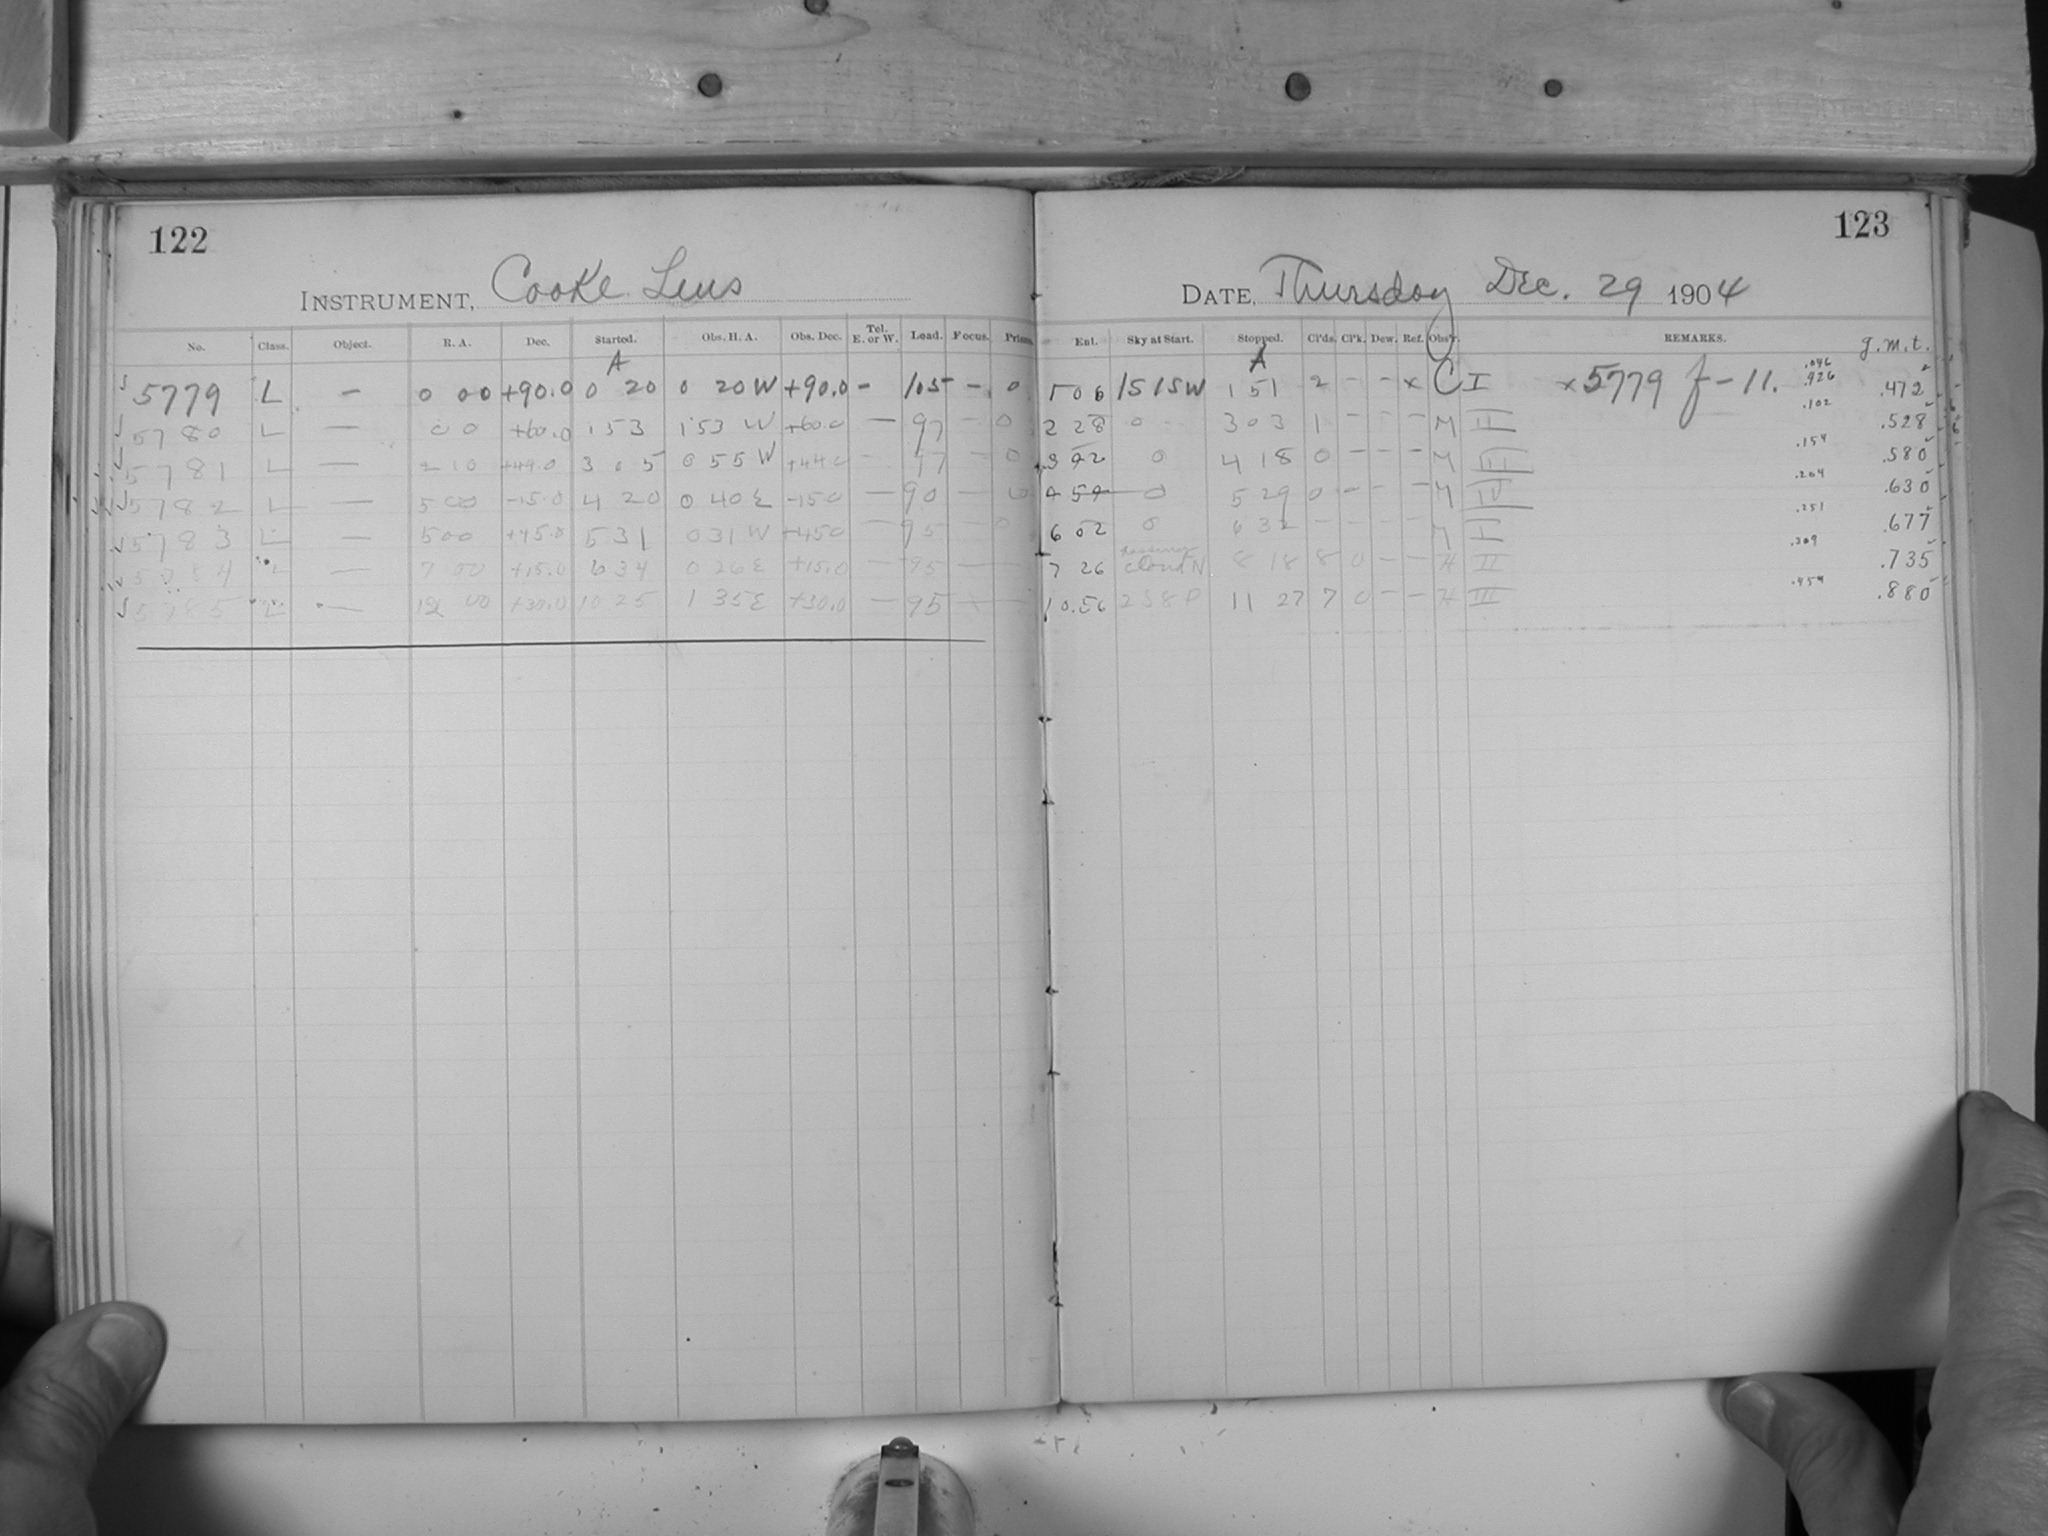 122
INSTRUMENT, Cooke Lens
No. Class. Object. R. A. Dec. Started. Obs. H. A. Obs. Dec. Tel. E. or W. Lead. Focus. Prism.
A
5779 L — 0 00 +90.0 0 20 0 20 W +90.0 - 105 - 0
5780 L — 0 0 +60.0 1 53 1 53 W +60.0 — 97 - 0
5781 L — 2 10 +44.0 3 05 0 55 W +44.0 — 97 - 0
5782 L — 5 00 -15.0 4 20 0 40 E -15.0 — 90 — 0
5783 L — 5 00 +45.0 5 31 0 31 W +45.0 — 95 - 0
5784 L — 7 00 +15.0 6 34 0 26 E +15.0 — 95 — —
5785 L — 12 00 +30.0 10 25 1 35 E +30.0 — 95 —
123
DATE, Thursday Dec. 29 1904
Ent. Sky at Start. Stopped. Cl'ds. Cl'k. Dew. Ref. Obs'r. REMARKS. g.m.t.
A
1 06 1515W 1 51 2 - - x C I x 5779 f - 11. .046 .926 .472
2 28 0 3 03 1 - - - M II .102 .528
3 42 0 4 18 0 - - - M III .154 .580
4 54 0 5 29 0 - - - M IV .204 .630
6 02 0 6 32 - - - - M I .251 .677
7 26 cloud N 8 18 8 0 - - H II .309 .735
10.56 2 5 8 P 11 27 7 0 - - H III .454 .880